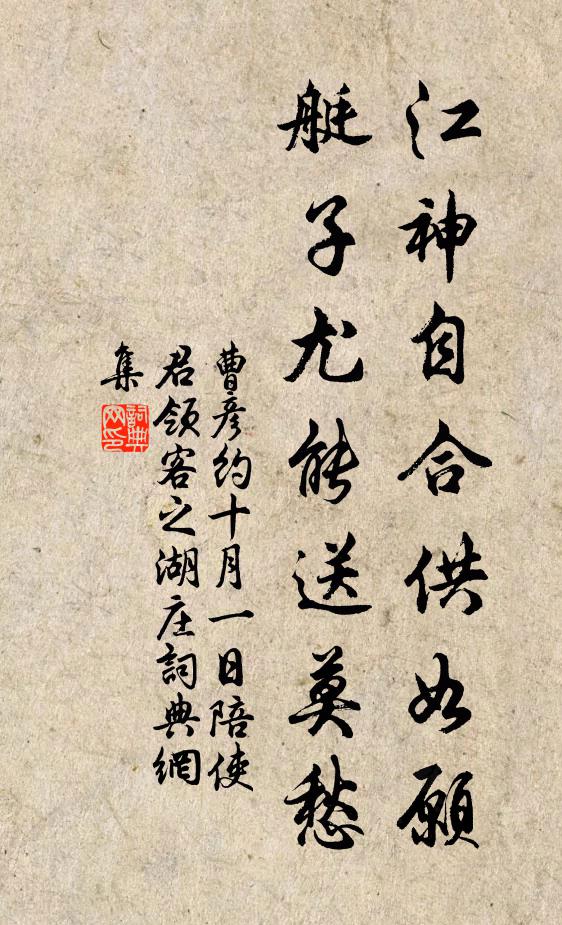 江神自合供如愿
艇子尤能送莫愁
曹彦约十月一日陪使
君领客之湖庄詞典網
集
詞典网印